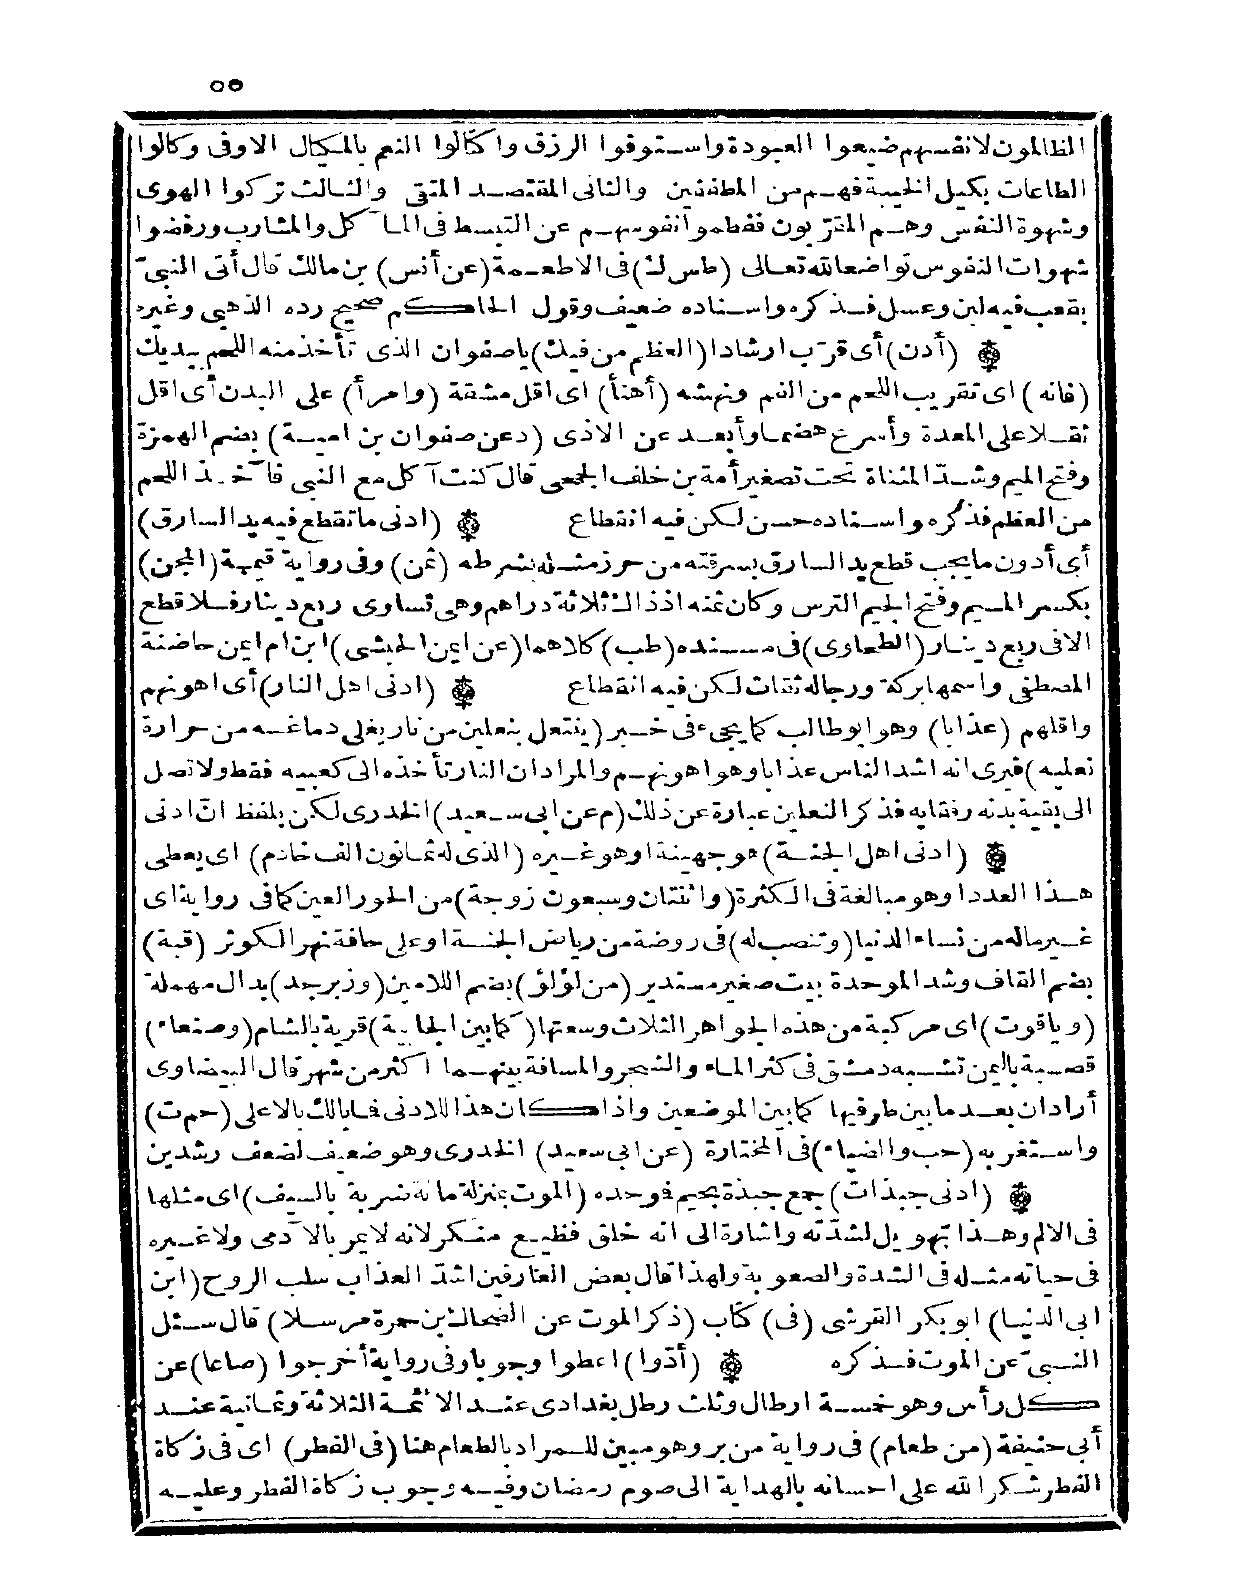 ٥٥
الظالمون لانفسهم ضيعوا العبودة واستوفوا الرزق واكالوا النعم بالمكيال الاوفى وكالوا
الطاعات بكيل الخيبة فهم من المطففين والثانى المقتصد المتقى والثالث تركوا الهوى
وشهوة النفس وهم المقرّبون فقطموا نفوسهم عن التبسط فى المآكل والمشارب ورفضوا
شهوات النفوس تواضعا لله تعالى (طس ك) فى الاطعمة (عن أنس) بن مالك قال أتى النبىّ
بقعب فيه لبن وعسل فذكره واسناده ضعيف وقول الحاكم صحيح رده الذهبى وغيره
۞ (أدن) أى قرّب ارشادا (العظم من فيك) ياصفوان الذى تأخذ منه اللحم بيديك
(فانه) اى تقريب اللحم من الفم ونهشه (أهنأ) اى اقل مشقة (وامرأ) على البدن أى اقل
ثقلا على المعدة وأسرع هضما وأبعد عن الاذى (د عن صفوان بن امية) بضم الهمزة
وفتح الميم وشدّ المثناة تحت تصغير أمة بن خلف الجمحى قال كنت آكل مع النبى فآخذ اللحم
من العظم فذكره واسناده حسن لكن فيه انقطاع ۞ (ادنى ما تقطع فيه يد السارق)
أى أدون ما يجب قطع يد السارق بسرقته من حرز مثله بشرطه (ثمن) وفى رواية قيمة (المجن)
بكسر الميم وفتح الجيم الترس وكان ثمنه اذ ذاك ثلاثة دراهم وهى تساوى ربع دينار فلا قطع
الا فى ربع دينار (الطحاوى) فى مسنده (طب) كلاهما (عن ايمن الحبشى) ابن ام ايمن حاضنة
المصطفى واسمها بركة ورجاله ثقات لكن فيه انقطاع ۞ (ادنى اهل النار) أى اهونهم
واقلهم (عذابا) وهو ابو طالب كما يجىء فى خبر (ينتعل بنعلين من نار يغلى دماغه من حرارة
نعليه) فيرى انه اشد الناس عذابا وهو اهونهم والمراد ان النار تأخذه الى كعبيه فقط ولا تصل
الى بقية بدنه رفقا به فذكر النعلين عبارة عن ذلك (م عن ابى سعيد) الخدرى لكن بلفظ انّ ادنى
۞ (ادنى اهل الجنة) هو جهينة اوهو غيره (الذى له ثمانون الف خادم) اى يعطى
هذا العدد او هو مبالغة فى الكثرة (واثنتان وسبعون زوجة) من الحور العين كما فى رواية اى
غير ماله من نساء الدنيا (وتنصب له) فى روضة من رياض الجنة او على حافة نهر الكوثر (قبة)
بضم القاف وشد الموحدة بيت صغير مستدير (من لؤلؤ) بضم اللامين (وزبرجد) بدال مهملة
(وياقوت) اى مركبة من هذه الجواهر الثلاث وسعتها (كما بين الجابية) قرية بالشام (وصنعاء)
قصبة باليمن تشبه دمشق فى كثر الماء والشجر والمسافة بينهما اكثر من شهر قال البيضاوى
أراد ان بعد ما بين طرفيها كما بين الموضعين واذا كان هذا للادنى فما بالك بالاعلى (حم ت)
واستغربه (حب والضياء) فى المختارة (عن ابى سعيد) الخدرى وهو ضعيف لضعف رشدين
۞ (ادنى جبذات) جمع جبذة بجيم فوحده (الموت بمنزلة مائة ضربة بالسيف) اى مثلها
فى الالم وهذا تهويل لشدّته واشارة الى انه خلق فظيع منكر لانه لا يمر بالآدمى ولا غيره
فى حياته مثله فى الشدة والصعوبة ولهذا قال بعض العارفين اشدّ العذاب سلب الروح (ابن
ابى الدنيا) ابو بكر القرشى (فى) كتاب (ذكر الموت عن الضحاك بن حمرة مرسلا) قال سئل
النبىّ عن الموت فذكره ۞ (أدّوا) اعطوا وجوبا وفى رواية أخرجوا (صاعا) عن
كل رأس وهو خمسة ارطال وثلث رطل بغدادى عند الائمة الثلاثة وثمانية عند
أبى حنيفة (من طعام) فى رواية من بر وهو مبين للمراد بالطعام هنا (فى الفطر) اى فى زكاة
الفطر شكرا لله على احسانه بالهداية الى صوم رمضان وفيه وجوب زكاة الفطر وعليه